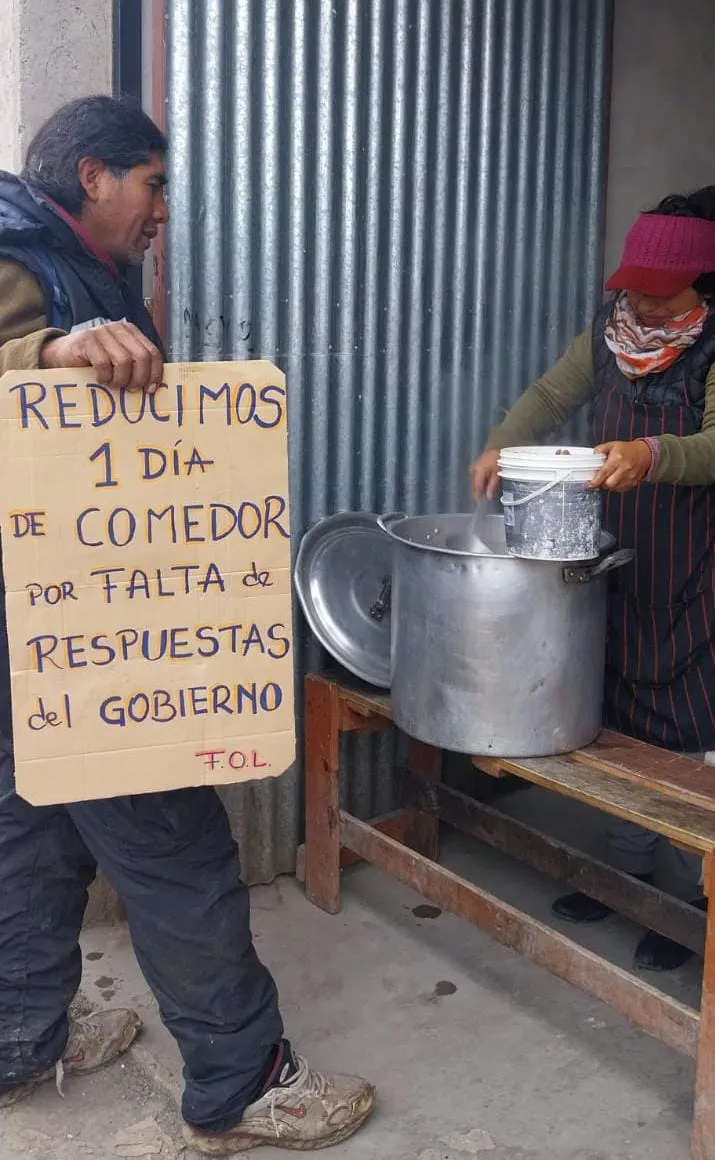 REDUCIMOS
1 DÍA
DE COMEDOR
POR FALTA de
RESPUESTAS
del GOBIERNO
F.O.L.